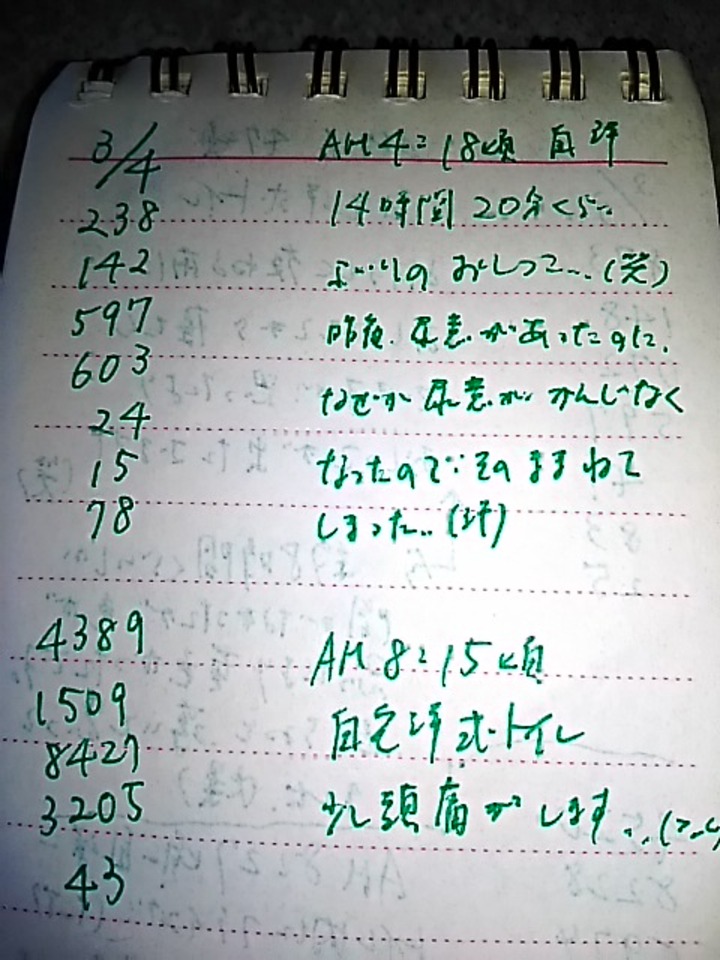 3/4 AM4:18頃 自洋
238 14時間20分くらい
142 ぶりのおしっこ…(笑)
597 昨夜、尿意があったのに、
603 なぜか尿意がかんじなく
24
15 なったのでそのままねて
78 しまった..(汗)
4389 AM8:15頃
1509 自宅洋式トイレ
8427
3205 少し頭痛がします..
43